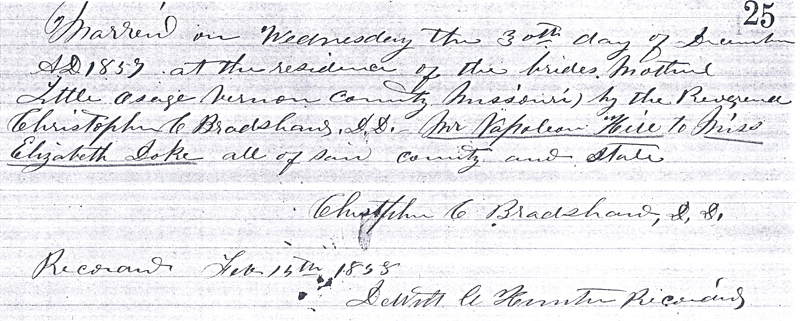 25
Married on Wednesday the 30th day of December
AD 1857 at the residence of the brides Mother
Little Osage Vernon County Missouri) by the Reverend
Christopher C Bradshaw, D.D. Mr Napoleon Hill to Miss
Elizabeth Doke all of said county and State
Christopher C Bradshaw, D. D.
Recorded Feb 15th 1858
DeWitt C Hunter Recorder